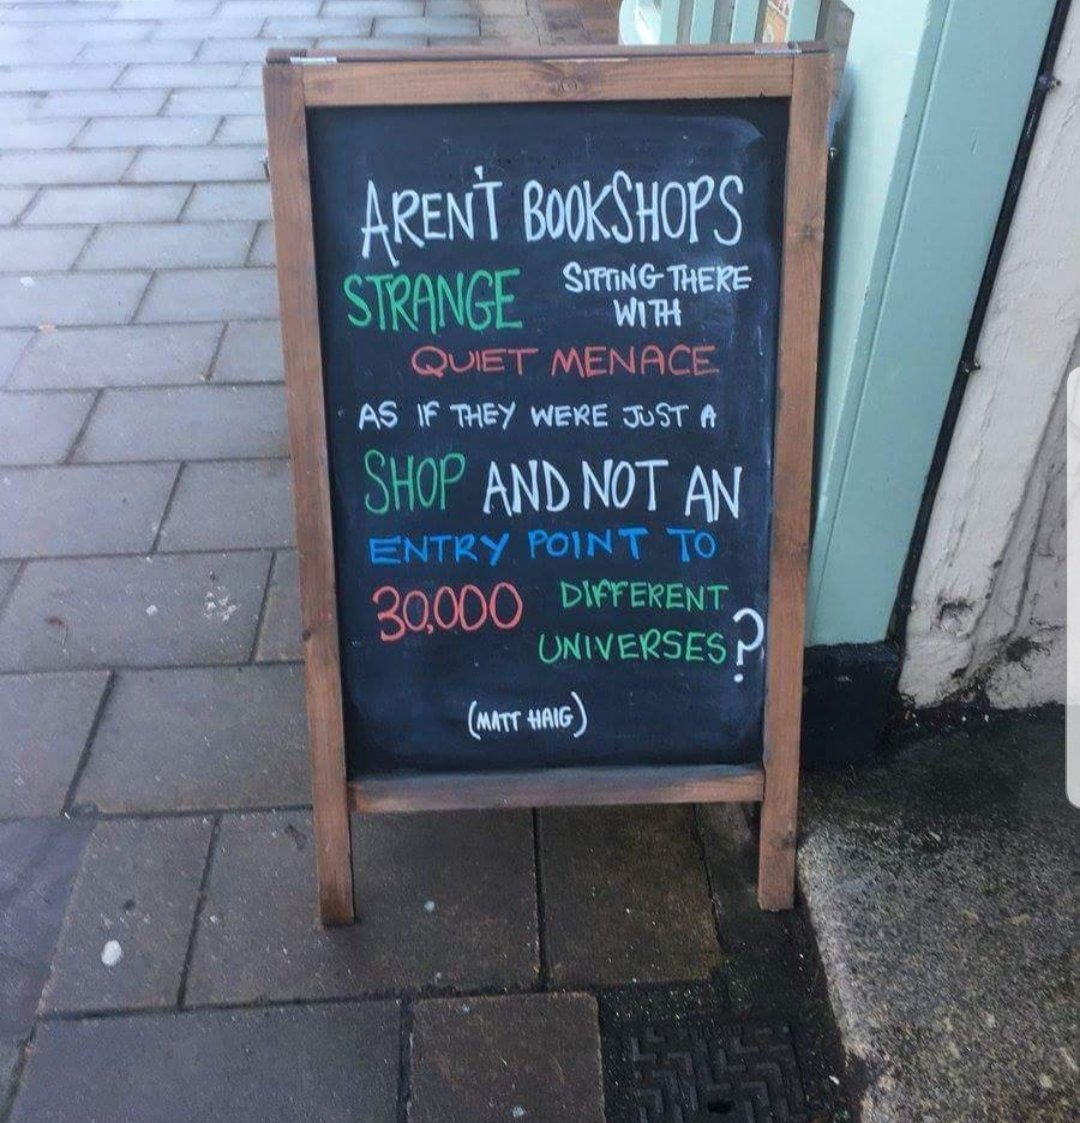 AREN'T BOOKSHOPS
STRANGE SITTING THERE
WITH
QUIET MENACE
AS IF THEY WERE JUST A
SHOP AND NOT AN
ENTRY POINT TO
30,000 DIFFERENT
UNIVERSES?
(MATT HAIG)